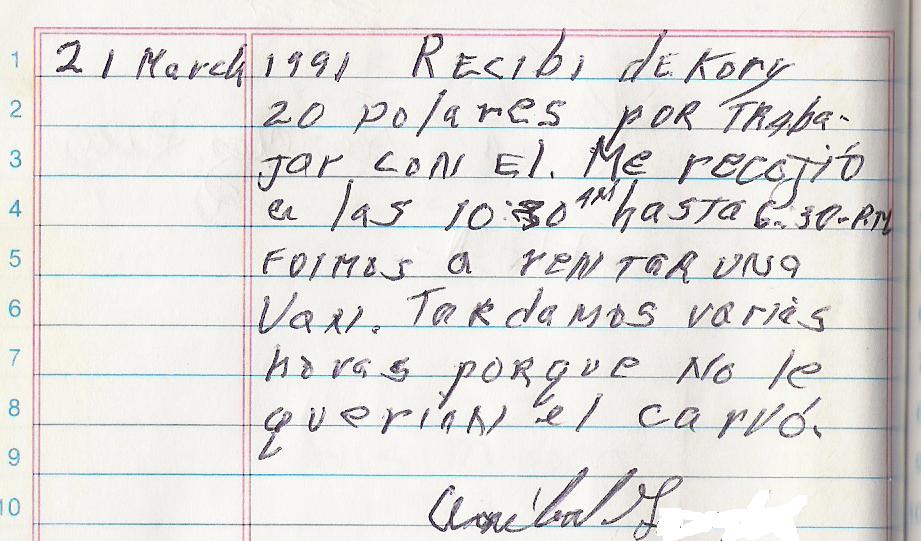 1 21 March 1991 Recibi de Kory
2 20 Dolares por Traba-
3 jar con El. Me recojió
4 a las 10:30 AM hasta 6:30-P.M
5 Foimos a rentar una
6 Van. Tardamos varias
7 horas porque No le
8 querian el carró.
9
10 Anibal G